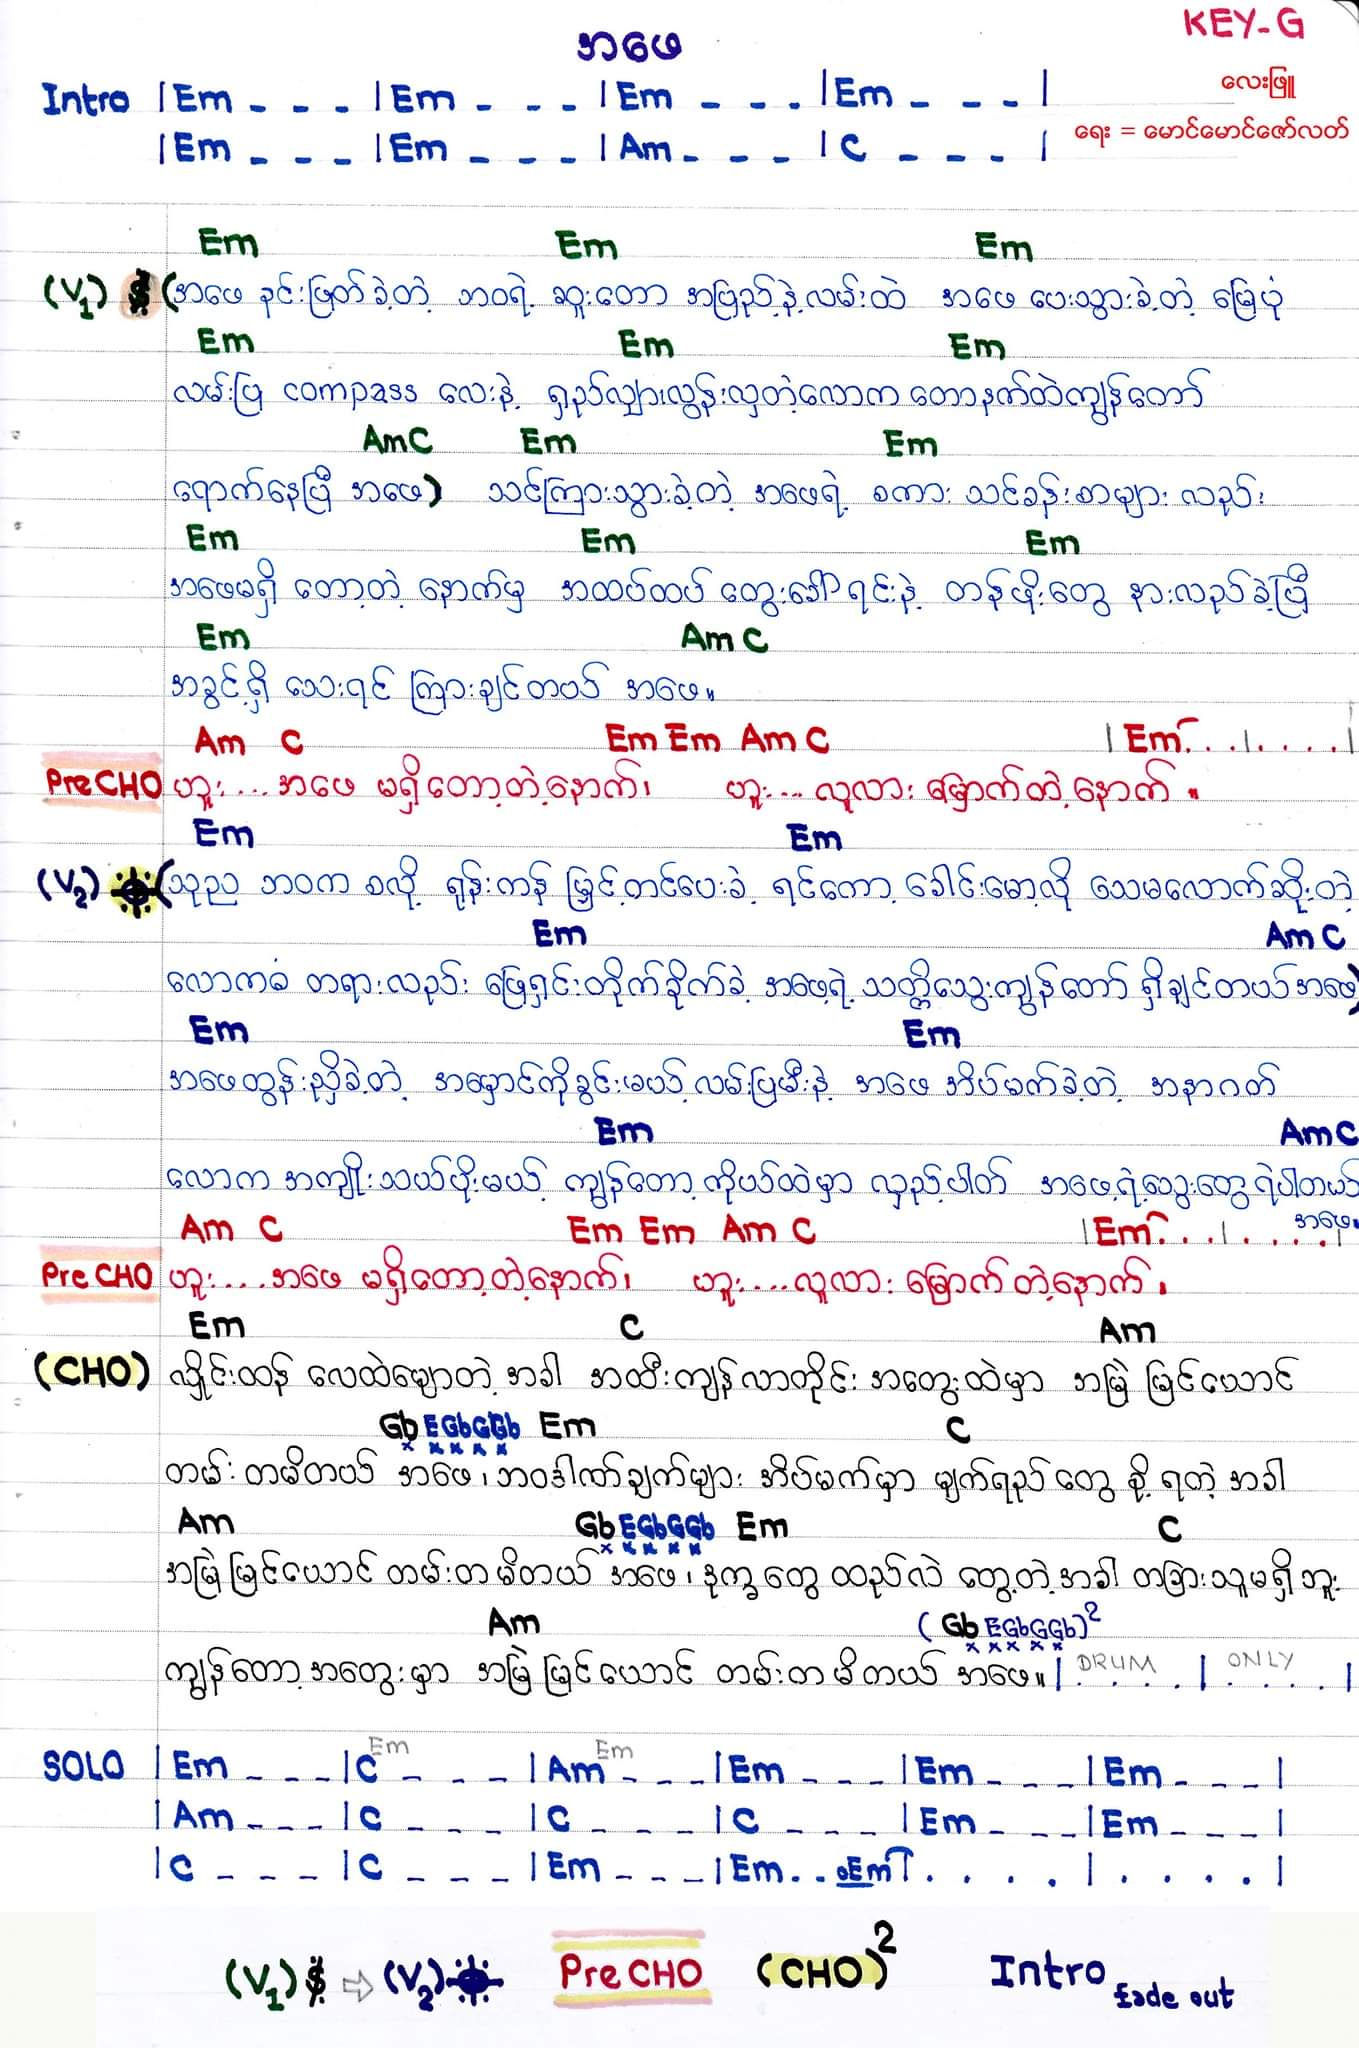 KEY-G
အဖေ
လေးဖြူ
ရေး = မောင်မောင်ဇော်လတ်
Intro | Em _ _ _ | Em _ _ _ | Em _ _ _ | Em _ _ _ |
| Em _ _ _ | Em _ _ _ | Am _ _ _ | C _ _ _ |
Em Em Em
(V1) (အဖေ နင်းဖြတ်ခဲ့တဲ့ ဘဝရဲ့ ဆူးတော အပြည့်နဲ့လမ်းထဲ အဖေ ပေးသွားခဲ့တဲ့ မြေပုံ
Em Em Em
လမ်းပြ compass လေးနဲ့ ရှည်လျားလွန်းလှတဲ့လောက တောနက်ထဲကျွန်တော်
Am C Em Em
ရောက်နေပြီ အဖေ) သင်ကြားသွားခဲ့တဲ့ အဖေရဲ့ စကား သင်ခန်းစာများ လည်း
Em Em Em
အဖေမရှိ တော့တဲ့ နောက်မှ အထပ်ထပ် တွေးခေါ်ရင်းနဲ့ တန်ဖိုးတွေ နားလည်ခဲ့ပြီ
Em Am C
အခွင့်ရှိ သေးရင် ကြားချင်တယ် အဖေ။
Am C Em Em Am C | Em . . . | . . . . |
Pre CHO ဟူး.... အဖေ မရှိတော့တဲ့နောက်၊ ဟူး... လူလား မြောက်တဲ့နောက် ။
Em Em
(V2) (သုည ဘဝက စလို့ ရုန်းကန် မြှင့်တင်ပေးခဲ့ ရင်ကော့ ခေါင်းမော့လို့ သေမလောက်ဆိုးတဲ့
Em Am C
လောကဓံ တရားလည်း ဖြေရှင်းတိုက်ခိုက်ခဲ့ အဖေ့ရဲ့ သတ္တိသွေးကျွန်တော် ရှိချင်တယ်အဖေ)
Em Em
အဖေထွန်းညှိခဲ့တဲ့ အမှောင်ကိုခွင်းမယ့် လမ်းပြမီးနဲ့ အဖေ အိပ်မက်ခဲ့တဲ့ အနာဂတ်
Em Am C
လောက အကျိုးသယ်ပိုးမယ့် ကျွန်တော့်ကိုယ်ထဲမှာ လှည့်ပါတ် အဖေ့ရဲ့သွေးတွေ ရဲပါတယ်
အဖေ။
Am C Em Em Am C | Em . . . | . . . . |
Pre CHO ဟူး.... အဖေ မရှိတော့တဲ့နောက်၊ ဟူး....လူလား မြောက်တဲ့နောက် ။
Em C Am
(CHO) လှိုင်းထန် လေထဲမျောတဲ့ အခါ အထီးကျန်လာတိုင်း အတွေးထဲမှာ အမြဲ မြင်ယောင်
Gb E Gb G Gb Em C
တမ်း တမိတယ် အဖေ၊ ဘဝဒါဏ်ချက်များ အိပ်မက်မှာ မျက်ရည်တွေ နို့ ရတဲ့ အခါ
Am Gb E Gb G Gb Em C
အမြဲမြင်ယောင် တမ်းတမိတယ် အဖေ၊ ဒုက္ခတွေ ထည်လဲ တွေ့တဲ့အခါ တခြားသူမရှိဘူး
Am (Gb E Gb G Gb)2
ကျွန်တော့်အတွေးမှာ အမြဲ မြင်ယောင် တမ်းတမိတယ် အဖေ။ | DRUM | ONLY |
Em Em
SOLO | Em _ _ _ | C _ _ _ | Am _ _ _ | Em _ _ _ | Em _ _ _ | Em _ _ _ |
| Am _ _ _ | C _ _ _ | C _ _ _ | C _ _ _ | Em _ _ _ | Em _ _ _ |
| C _ _ _ | C _ _ _ | Em _ _ _ | Em . . Em . . . . | . . . . |
(V1) ⇨ (V2) Pre CHO (CHO)2 Intro fade out